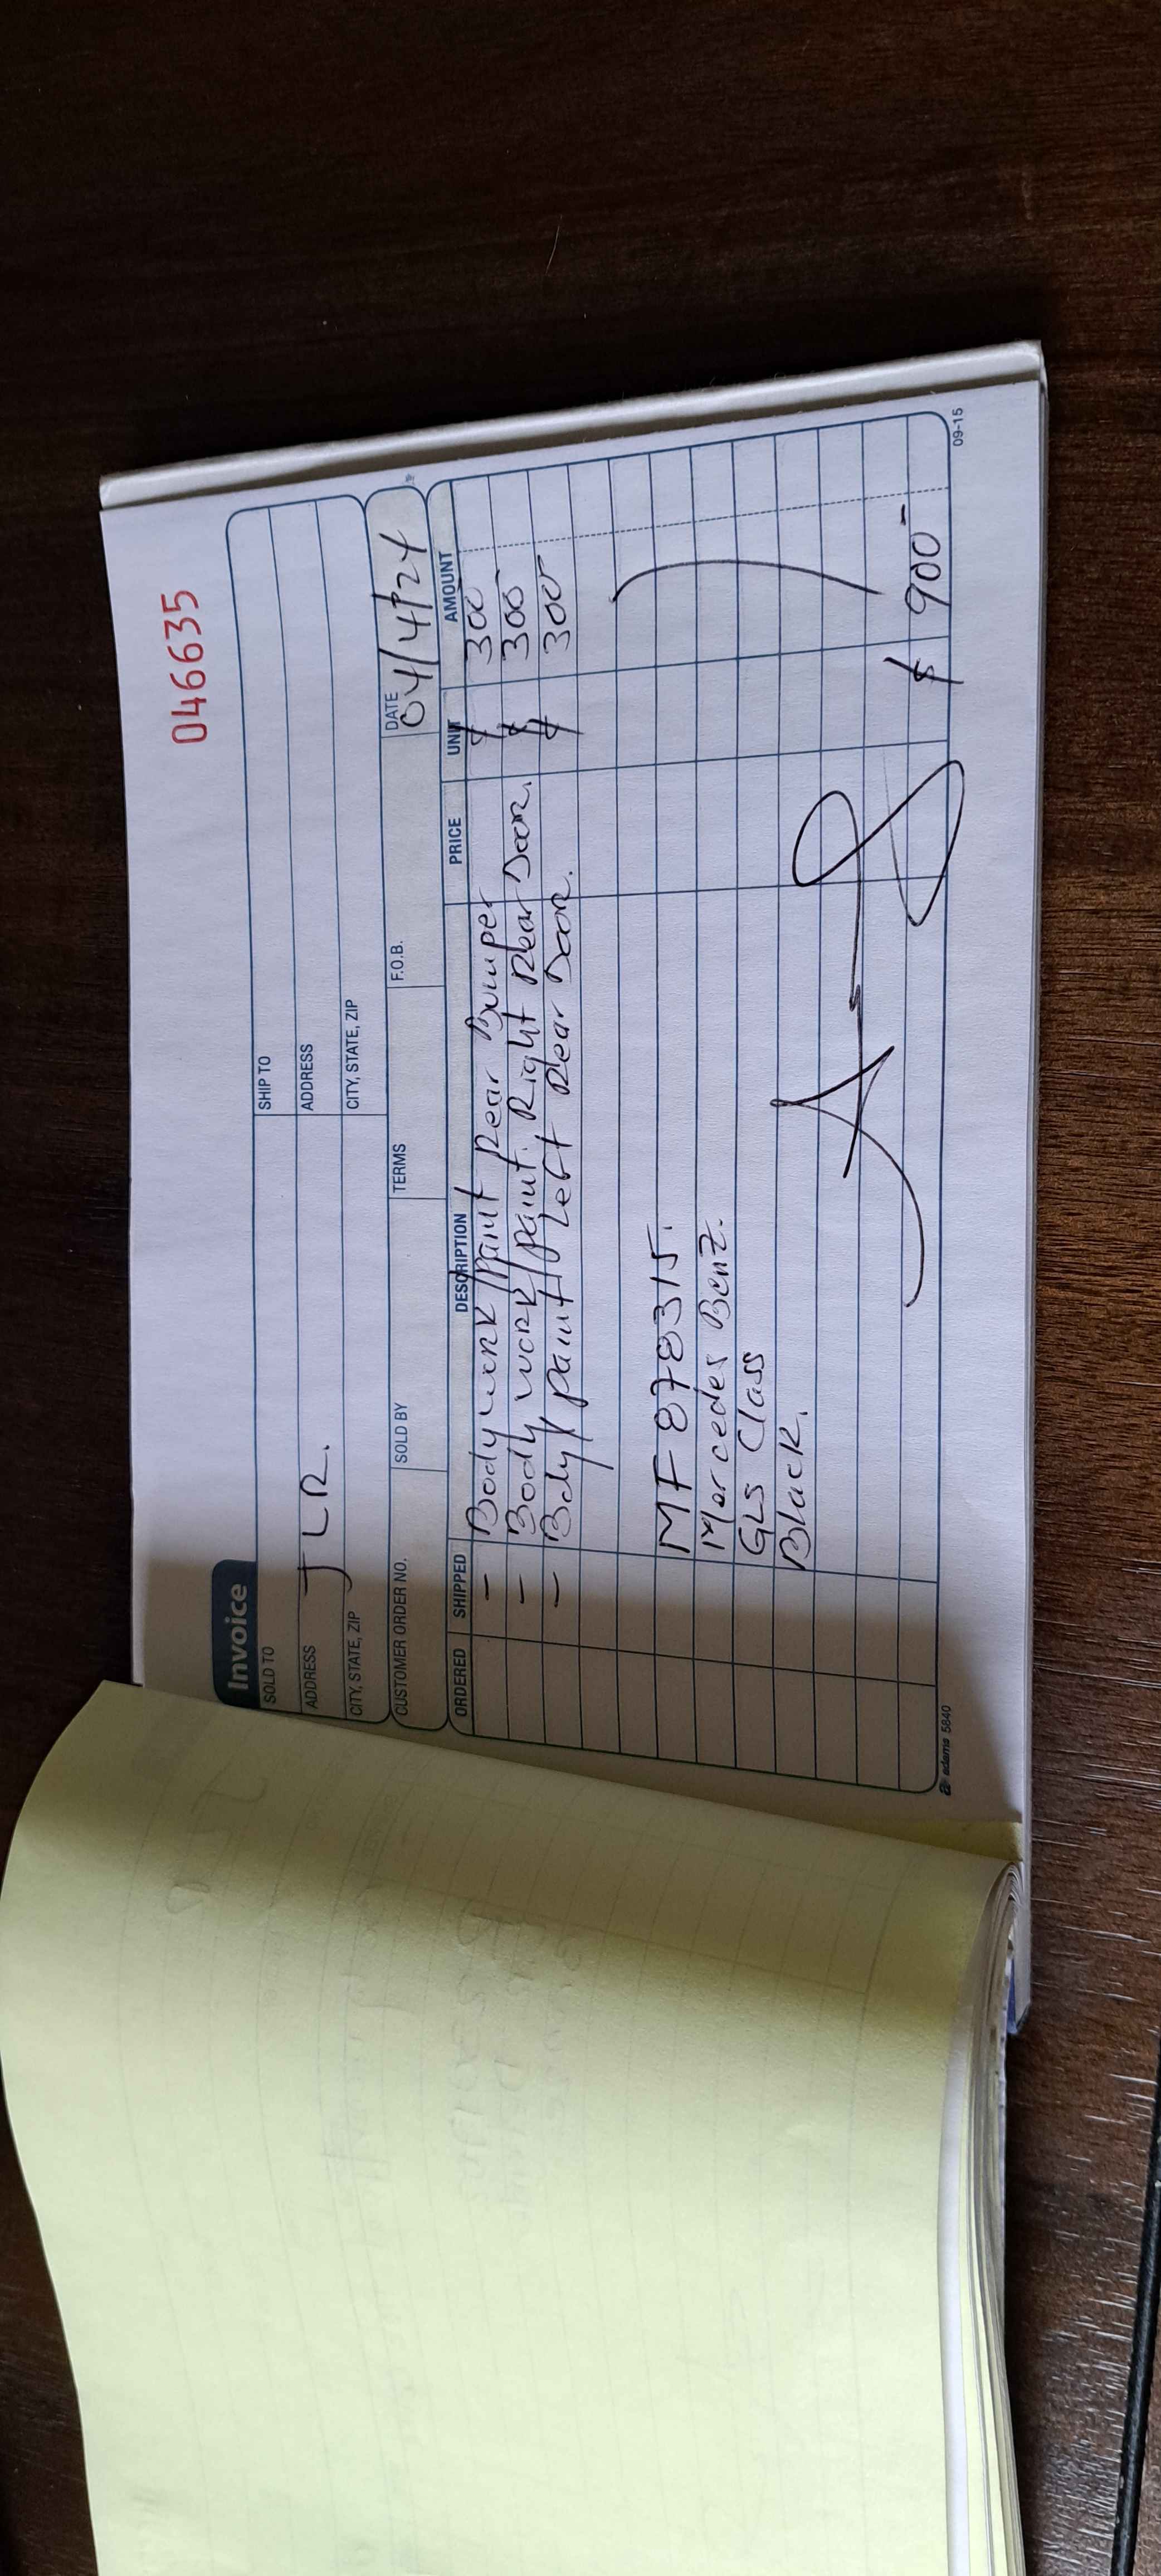 046635
Invoice
SOLD TO
SHIP TO
ADDRESS
JLR.
ADDRESS
CITY, STATE, ZIP
CITY, STATE, ZIP
CUSTOMER ORDER NO. SOLD BY TERMS F.O.B. DATE
04/4/24
ORDERED SHIPPED DESCRIPTION PRICE UNIT AMOUNT
- Body work/Paint Rear Bumper $ 300
- Body work/paint. Right Rear Door. $ 300
- Body/paint/Left Rear Door. $ 300
MF878315.
Mercedes Benz.
GLS Class
Black.
$ 900-
adams 5840
09-15